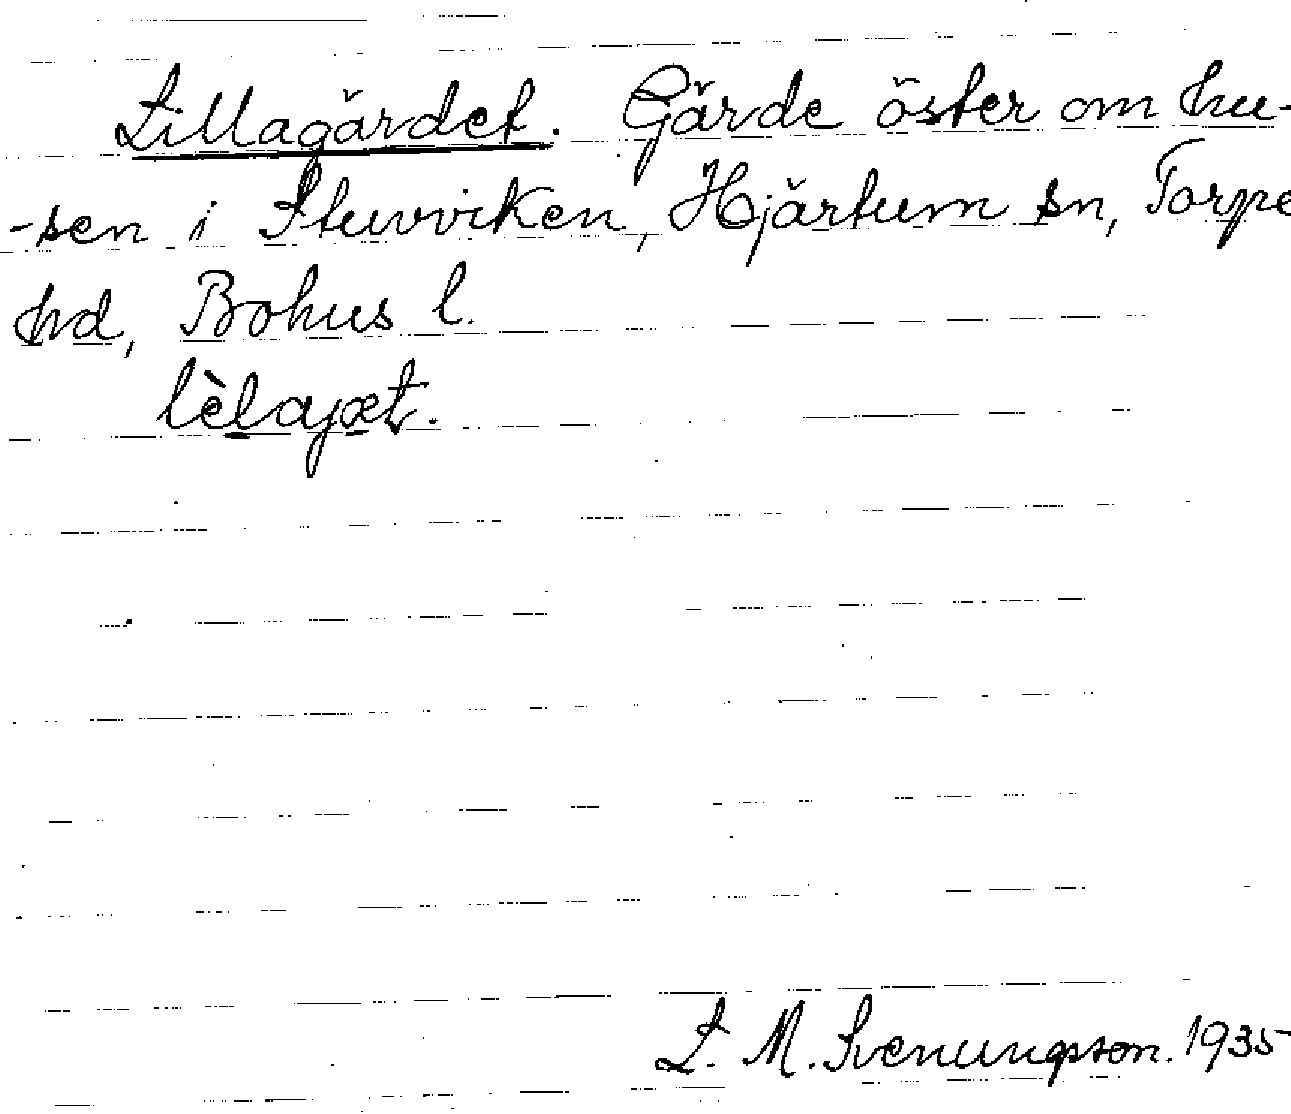 Lillagärdet. Gärde öster om hu-
-sen i Stuvviken, Hjärtum sn, Torpe
hd, Bohus l.
lèlajæt.
L. M. Svenungson. 1935